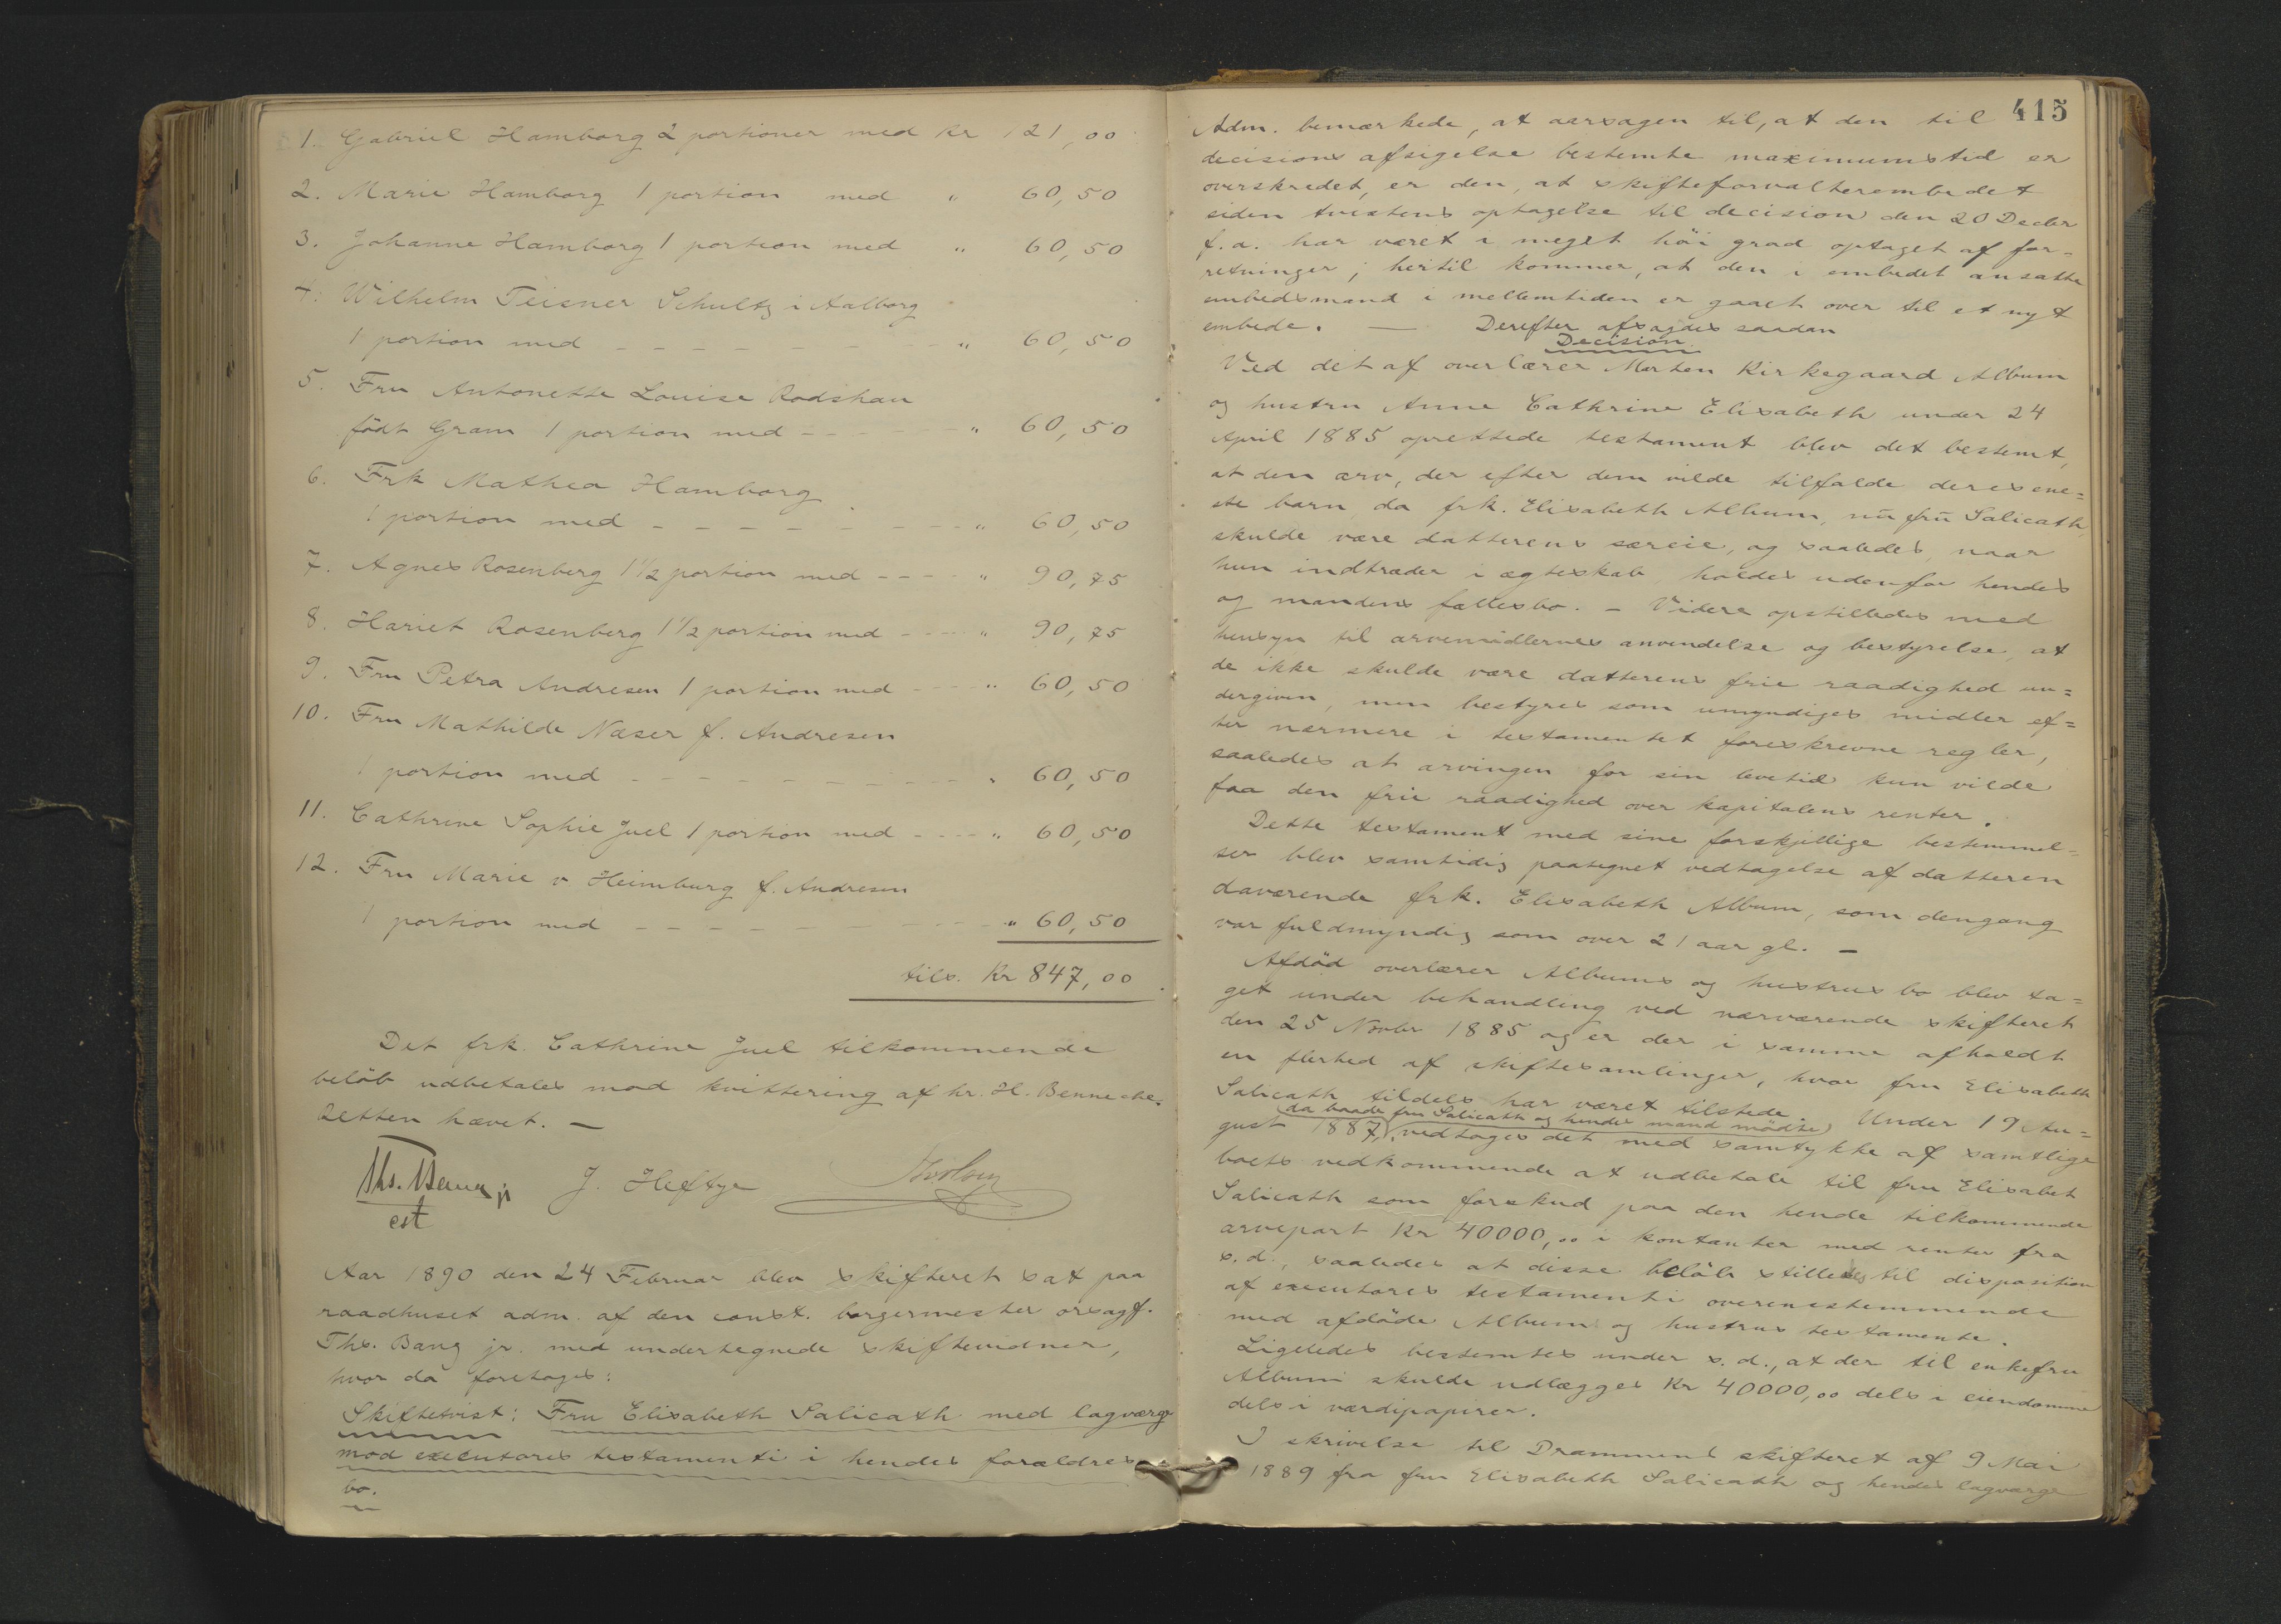 1. Gabriel Hamborg 2 portioner med kr 121,00
2. Marie Hamborg 1 portion med " 60,50
3. Johanne Hamborg 1 portion med " 60,50
4. Wilhelm Teisner Schultz i Aalborg
1 portion med " 60,50
5. Fru Antonette Louise Rodshau
født Gram 1 portion med " 60,50
6. Frk Mathea Hamborg
1 portion med " 60,50
7. Agnes Rosenberg 1 1/2 portion med " 90,75
8. Hariet Rosenberg 1 1/2 portion med " 90,75
9. Fru Petra Andresen 1 portion med " 60,50
10. Fru Mathilde Næser f. Andresen
1 portion med " 60,50
11. Cathrine Sophie Juel 1 portion med " 60,50
12. Fru Marie v Heimburg f. Andresen
1 portion med " 60,50
tils. Kr 847,00
Det frk. Cathrine Juel tilkommende
beløb udbetales mod kvittering af hr. H. Benneche.
Retten hævet. —
Ths. Bang jr J. Heftye
cst
Aar 1890 den 24 Februar blev skifteret sat paa
raadhuset adm. af den const. borgermester orsagf.
Ths. Bang jr. med undertegnede skiftevidner,
hvor da foretoges:
Skiftetvist: Fru Elisabeth Salicath med lagværge
mod executores testamenti i hendes forældres
bo.
415
Adm. bemærkede, at aarsagen til, at den til
decisions afsigelse bestemte maximumstid er
overskredet, er den, at skifteforvalterembedet
siden tvistens optagelse til decision den 20 Decbr
f.a. har været i meget høi grad optaget af for-
retninger; hertil kommer, at den i embedet ansatte
embedsmand i mellemtiden er gaaet over til et nyt
embede. — Derefter afsagdes saadan
Decision
Ved det af overlærer Morten Kirkegaard Album
og hustru Anne Cathrine Elisabeth under 24
April 1885 oprettede testament blev det bestemt,
at den arv, der efter dem vilde tilfalde deres ene=
ste barn, da frk. Elisabeth Album, nu fru Salicath,
skulde være datterens særeie, og saaledes, naar
hun indtræder i ægteskab, holdes udenfor hendes
og mandens fællesbo. – Videre opstilledes med
hensyn til arvemidlernes anvendelse og bestyrelse, at
de ikke skulde være datterens frie raadighed un=
dergiven, men bestyres som umyndiges midler ef=
ter nærmere i testamentet foreskrevne regler,
saaledes at arvingen for sin levetid kun vilde
faa den frie raadighed over kapitalens renter.
Dette testament med sine forskjellige bestemmel=
ser blev samtidig paategnet vedtagelse af datteren
daværende frk. Elisabeth Album, som dengang
var fuldmyndig som over 21 aar gl. —
Afdød overlærer Albums og hustrus bo blev ta=
get under behandling ved nærværende skifteret
den 25 Novbr 1885 og er der i samme afholdt
en flerhed af skiftesamlinger, hvor fru Elisabeth
Salicath tildels har været tilstede. Under 19 Au=
da baade fru Salicath og hendes mand mødte
gust 1887, vedtoges det med samtykke af samtlige
boets vedkommende at udbetale til fru Elisabet
Salicath som forskud paa den hende tilkommende
arvepart Kr 40000,00 i kontanter med renter fra
s.d., saaledes at disse beløb stilledes til disposition
af executores testamenti overensstemmende
med afdøde Albums og hustrus testamente.
Ligeledes bestemtes under s.d., at der til enkefru
Album skulde udlægges Kr 40000,00 dels i eiendomme
dels i værdipapirer.
I skrivelse til Drammens skifteret af 9 Mai
1889 fra fru Elisabeth Salicath og hendes lagværge